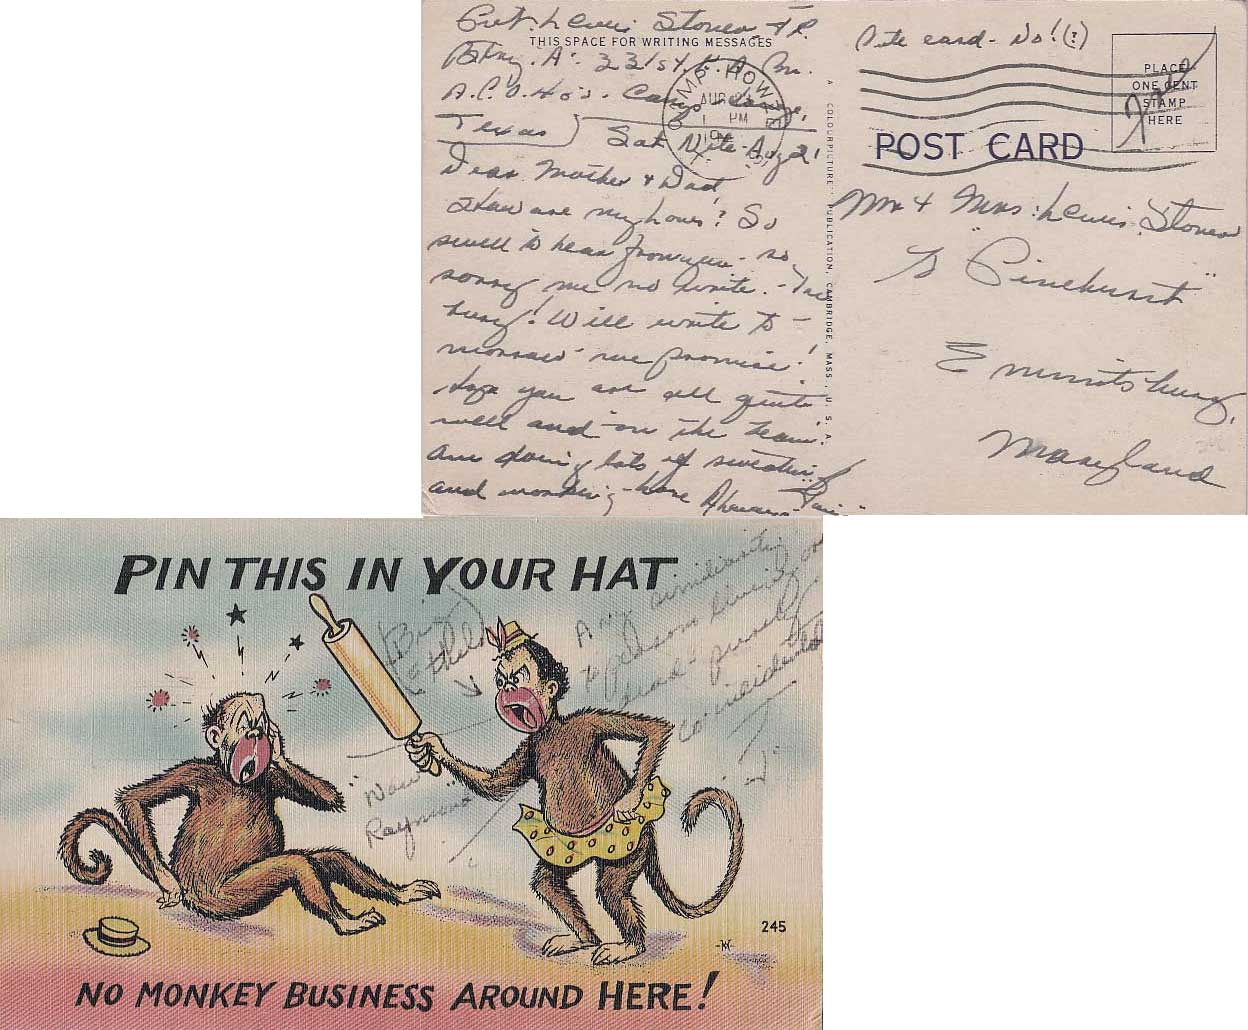 Pvt. Lewis Stoner Jr.
THIS SPACE FOR WRITING MESSAGES
Btry. A. 331st. F. A. Bn.
A.P.O. 405. Camp Howze,
Texas
Sat Nite Aug 21
Dear Mother & Dad
How are my loves? So
swell to hear from you - so
sorry me no write. - Too
busy! Will write to-
morrow me promise!
Hope you are all quite
well and "on the beam".
Am doing lots of sweating
and working - love Always
CAMP HOWZE
AUG
PM
A "COLOURPICTURE" PUBLICATION, CAMBRIDGE, MASS., U. S. A.
Cute card - No! (?)
PLACE
ONE CENT
STAMP
HERE
Free
POST CARD
Mr & Mrs. Lewis Stoner
"Pinehurst"
Emmitsburg,
Maryland
PIN THIS IN YOUR HAT
Ethel
Any similarity
to persons living or
dead - purely
coincidental
"Now
Raymond"
245
NO MONKEY BUSINESS AROUND HERE!